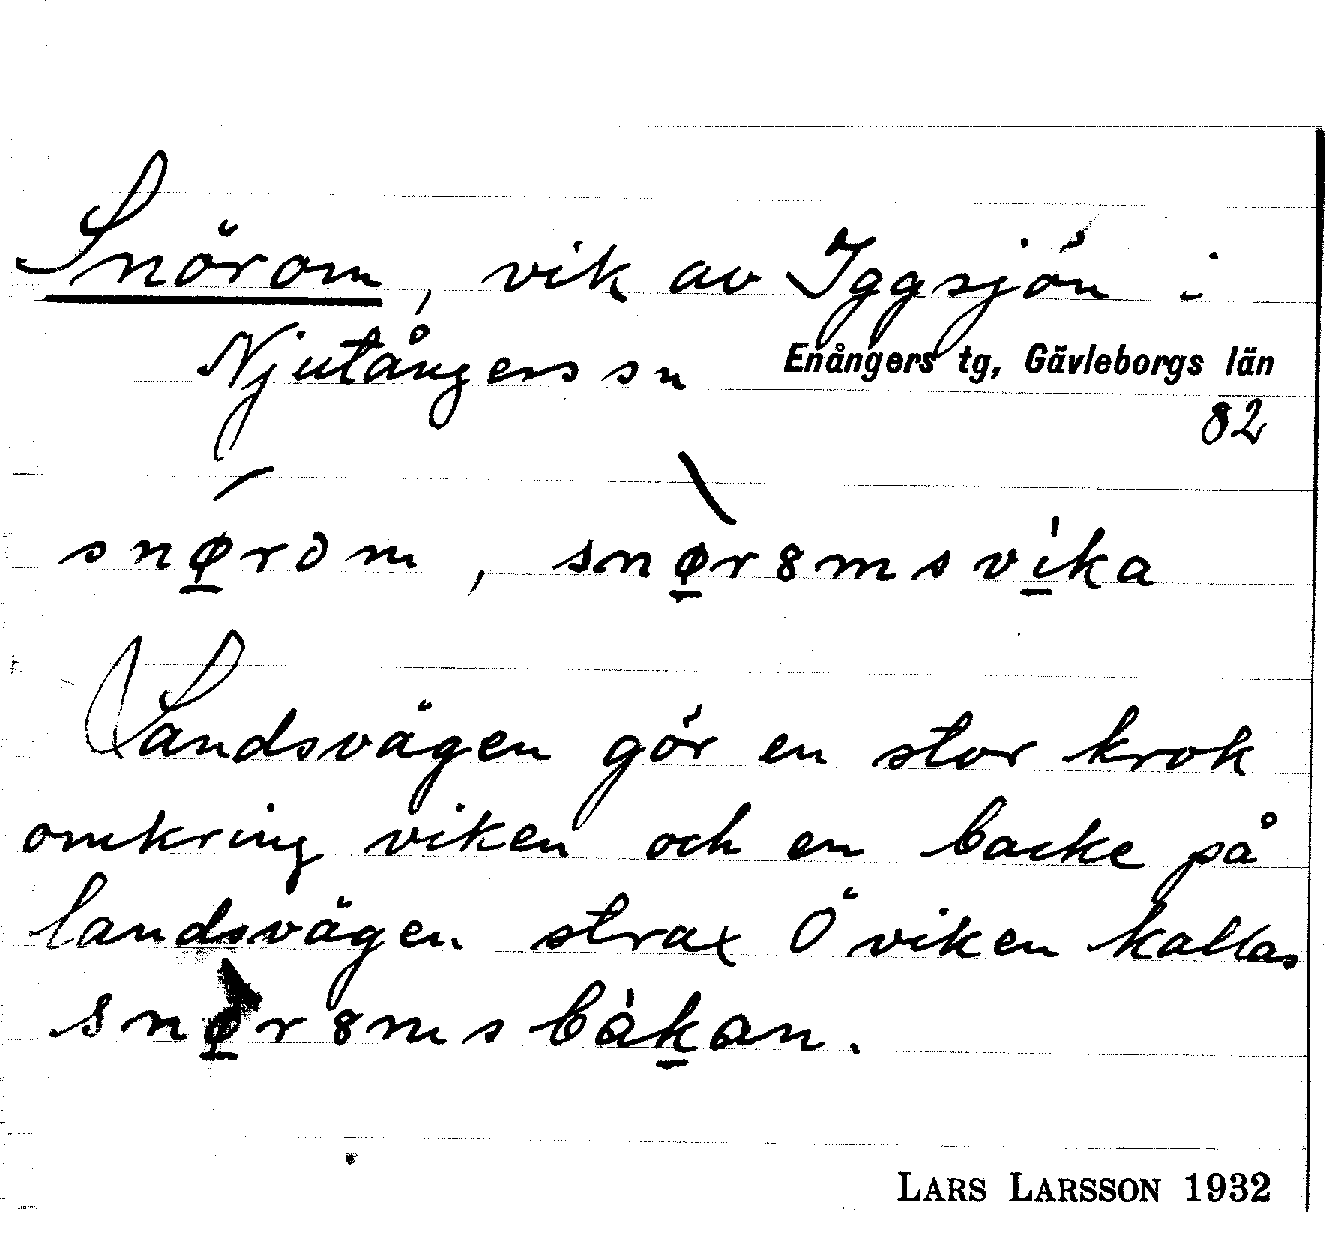 Snörom, vik av Iggsjön i
Njutångers sn Enångers tg, Gävleborgs län
82
snǿ̲rom, snø̲̀r8msvi̲̍ka
Landsvägen gör en stor krok
omkring viken och en backe på
landsvägen strax Ö viken kallas
snø̲r8msbàk̲an.
LARS LARSSON 1932